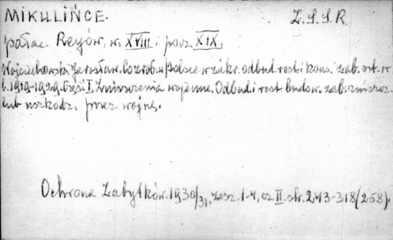 MIKULIŃCE. Z.S.S.R
pałac Reyów, w. XVIII i pocz. XIX.
Wojciechowski Jarosław. Co zrob. w Polsce w zakr. odbud. rest. i kons. zab. szt. w
l. 1919-1929. Część I. Zniszczenia wojenne. Odbud. i rest. budow. zab. zniszcz.
lub uszkodz. przez wojnę.
Ochrona Zabytków. 1930/31, zesz. 1-4, cz. II. str. 243-318 (258).